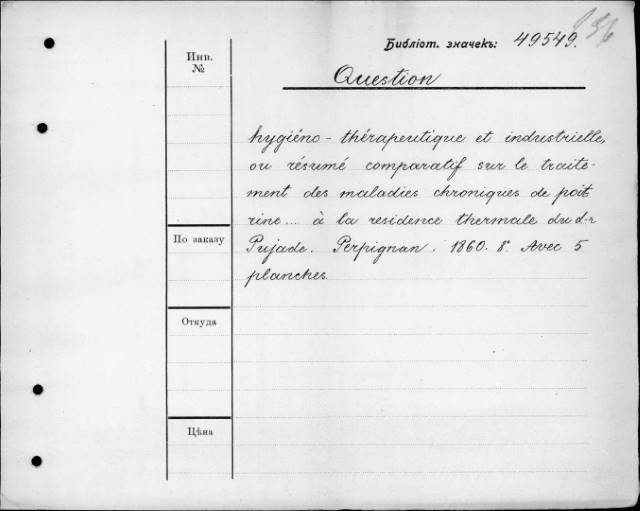 156
Библіот. значекъ: 49549.
Инв.
№
Question
hygiéno-thérapeutique et industrielle,
ou résumé comparatif sur le traite-
ment des maladies chroniques de poit
rine... à la residence thermale du d-r
По заказу
Pujade. Perpignan. 1860. 8°. Avec 5
planches.
Откуда
Цѣна